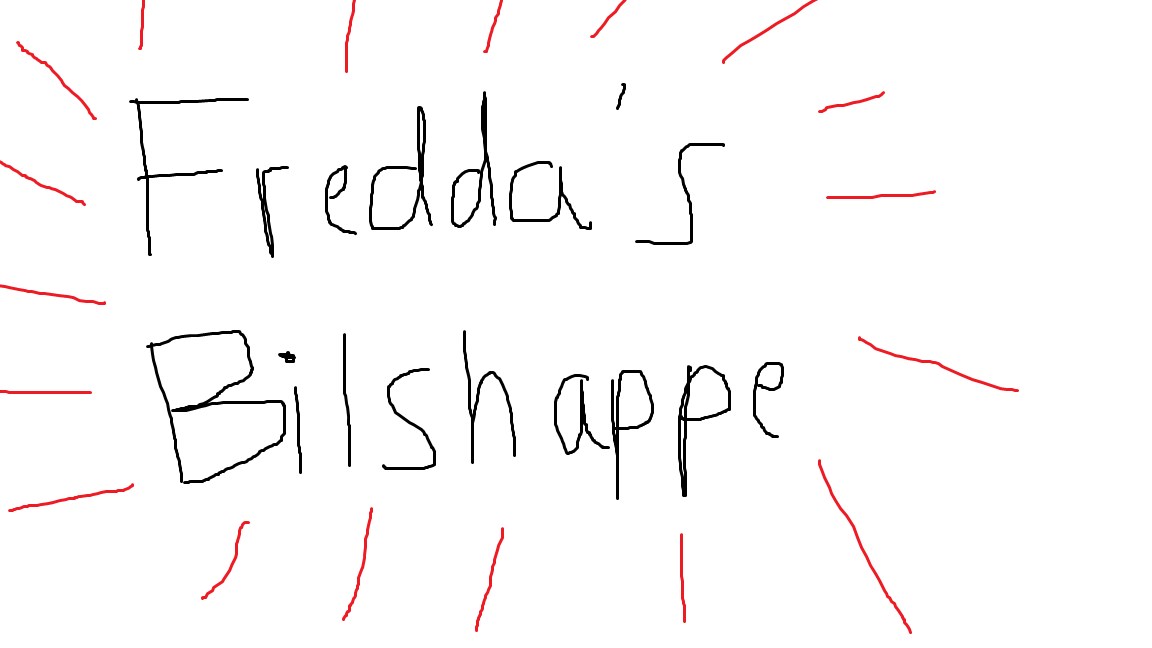 Fredda's
Bilshappe